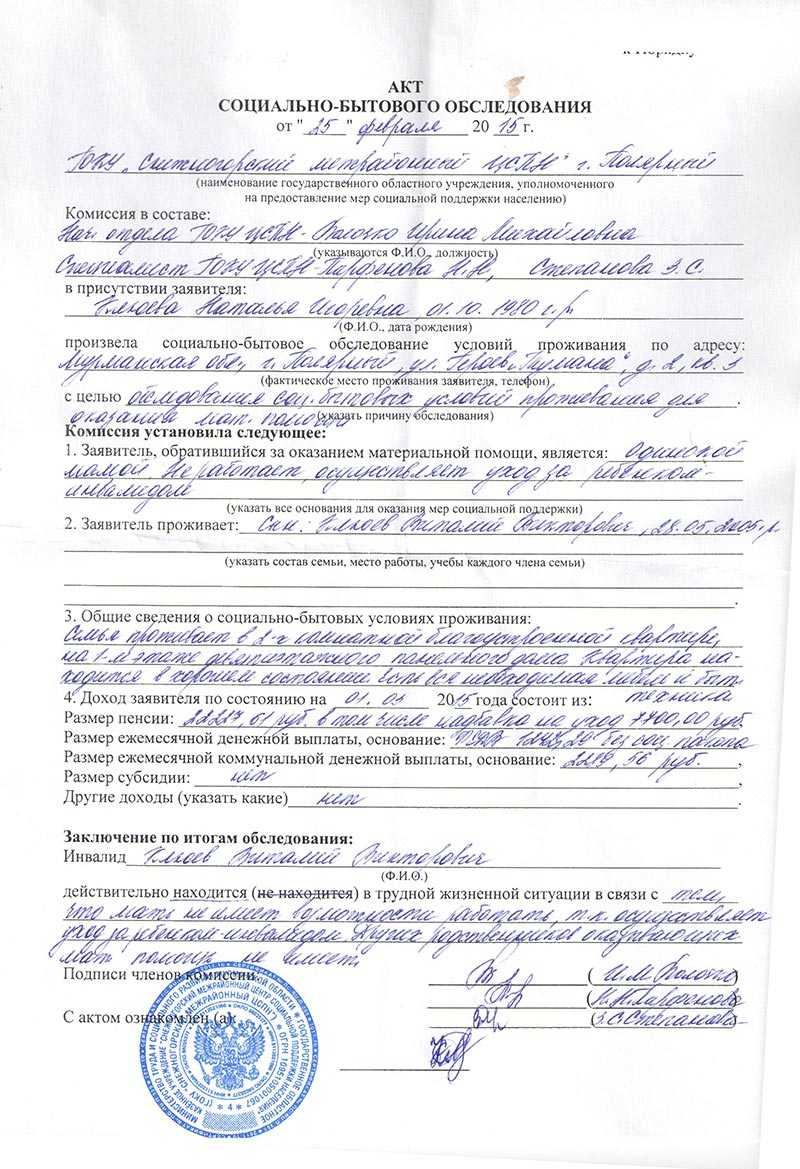 АКТ
СОЦИАЛЬНО-БЫТОВОГО ОБСЛЕДОВАНИЯ
от "25" февраля 2015 г.
ГОКУ „Снежногорский межрайонный ЦСПН" г. Полярный
(наименование государственного областного учреждения, уполномоченного
на предоставление мер социальной поддержки населению)
Комиссия в составе:
Нач. отдела ГОКУ ЦСПН - Волотко Ирина Михайловна
(указываются Ф.И.О., должность)
Специалист ГОКУ ЦСПН - Парфенова Н.Н, Степанова З.С.
в присутствии заявителя:
Клюева Наталья Игоревна, 01.10.1980 г.р.
(Ф.И.О., дата рождения)
произвела социально-бытовое обследование условий проживания по адресу:
Мурманская обл, г. Полярный, ул. Героев „Тумана", д. 2, кв. 3
(фактическое место проживания заявителя, телефон)
с целью обследования соц. бытовых условий проживания для
оказания мат. помощи
(указать причину обследования)
Комиссия установила следующее:
1. Заявитель, обратившийся за оказанием материальной помощи, является: Одинокой
мамой. Не работает, осуществляет уход за ребенком-
инвалидом
(указать все основания для оказания мер социальной поддержки)
2. Заявитель проживает: сын: Клюев Виталий Викторович, 28.05.2005г.р
(указать состав семьи, место работы, учебы каждого члена семьи)
3. Общие сведения о социально-бытовых условиях проживания:
Семья проживает в 2-х комнатной благоустроенной квартире,
на 1-м этаже девятиэтажного панельного дома. Квартира на-
ходится в хорошем состоянии. Есть вся необходимая мебель и быт.
техника
4. Доход заявителя по состоянию на 01.03 2015 года состоит из:
Размер пенсии: руб. в том числе надбавка на уход 7700,00 руб.
Размер ежемесячной денежной выплаты, основание: без соц. пакета
Размер ежемесячной коммунальной денежной выплаты, основание: 2289,56 руб.
Размер субсидии: нет
Другие доходы (указать какие) нет
Заключение по итогам обследования:
Инвалид Клюев Виталий Викторович
(Ф.И.О.)
действительно находится (не находится) в трудной жизненной ситуации в связи с тем,
что мать не имеет возможности работать, т.к. осуществляет
уход за ребенком-инвалидом. Других родственников оказывающих
мат помощь не имеет
Подписи членов комиссии: (И.М.Волотко)
(Н.Н.Парфенова)
С актом ознакомлен (а): (З.С.Степанова)
МИНИСТЕРСТВО ТРУДА И СОЦИАЛЬНОГО РАЗВИТИЯ МУРМАНСКОЙ ОБЛАСТИ * ГОСУДАРСТВЕННОЕ ОБЛАСТНОЕ
КАЗЕННОЕ УЧРЕЖДЕНИЕ "СНЕЖНОГОРСКИЙ МЕЖРАЙОННЫЙ ЦЕНТР СОЦИАЛЬНОЙ ПОДДЕРЖКИ НАСЕЛЕНИЯ"
(ГОКУ "СНЕЖНОГОРСКИЙ МЕЖРАЙОННЫЙ ЦСПН") * ОГРН 1095105001067
* 4 *